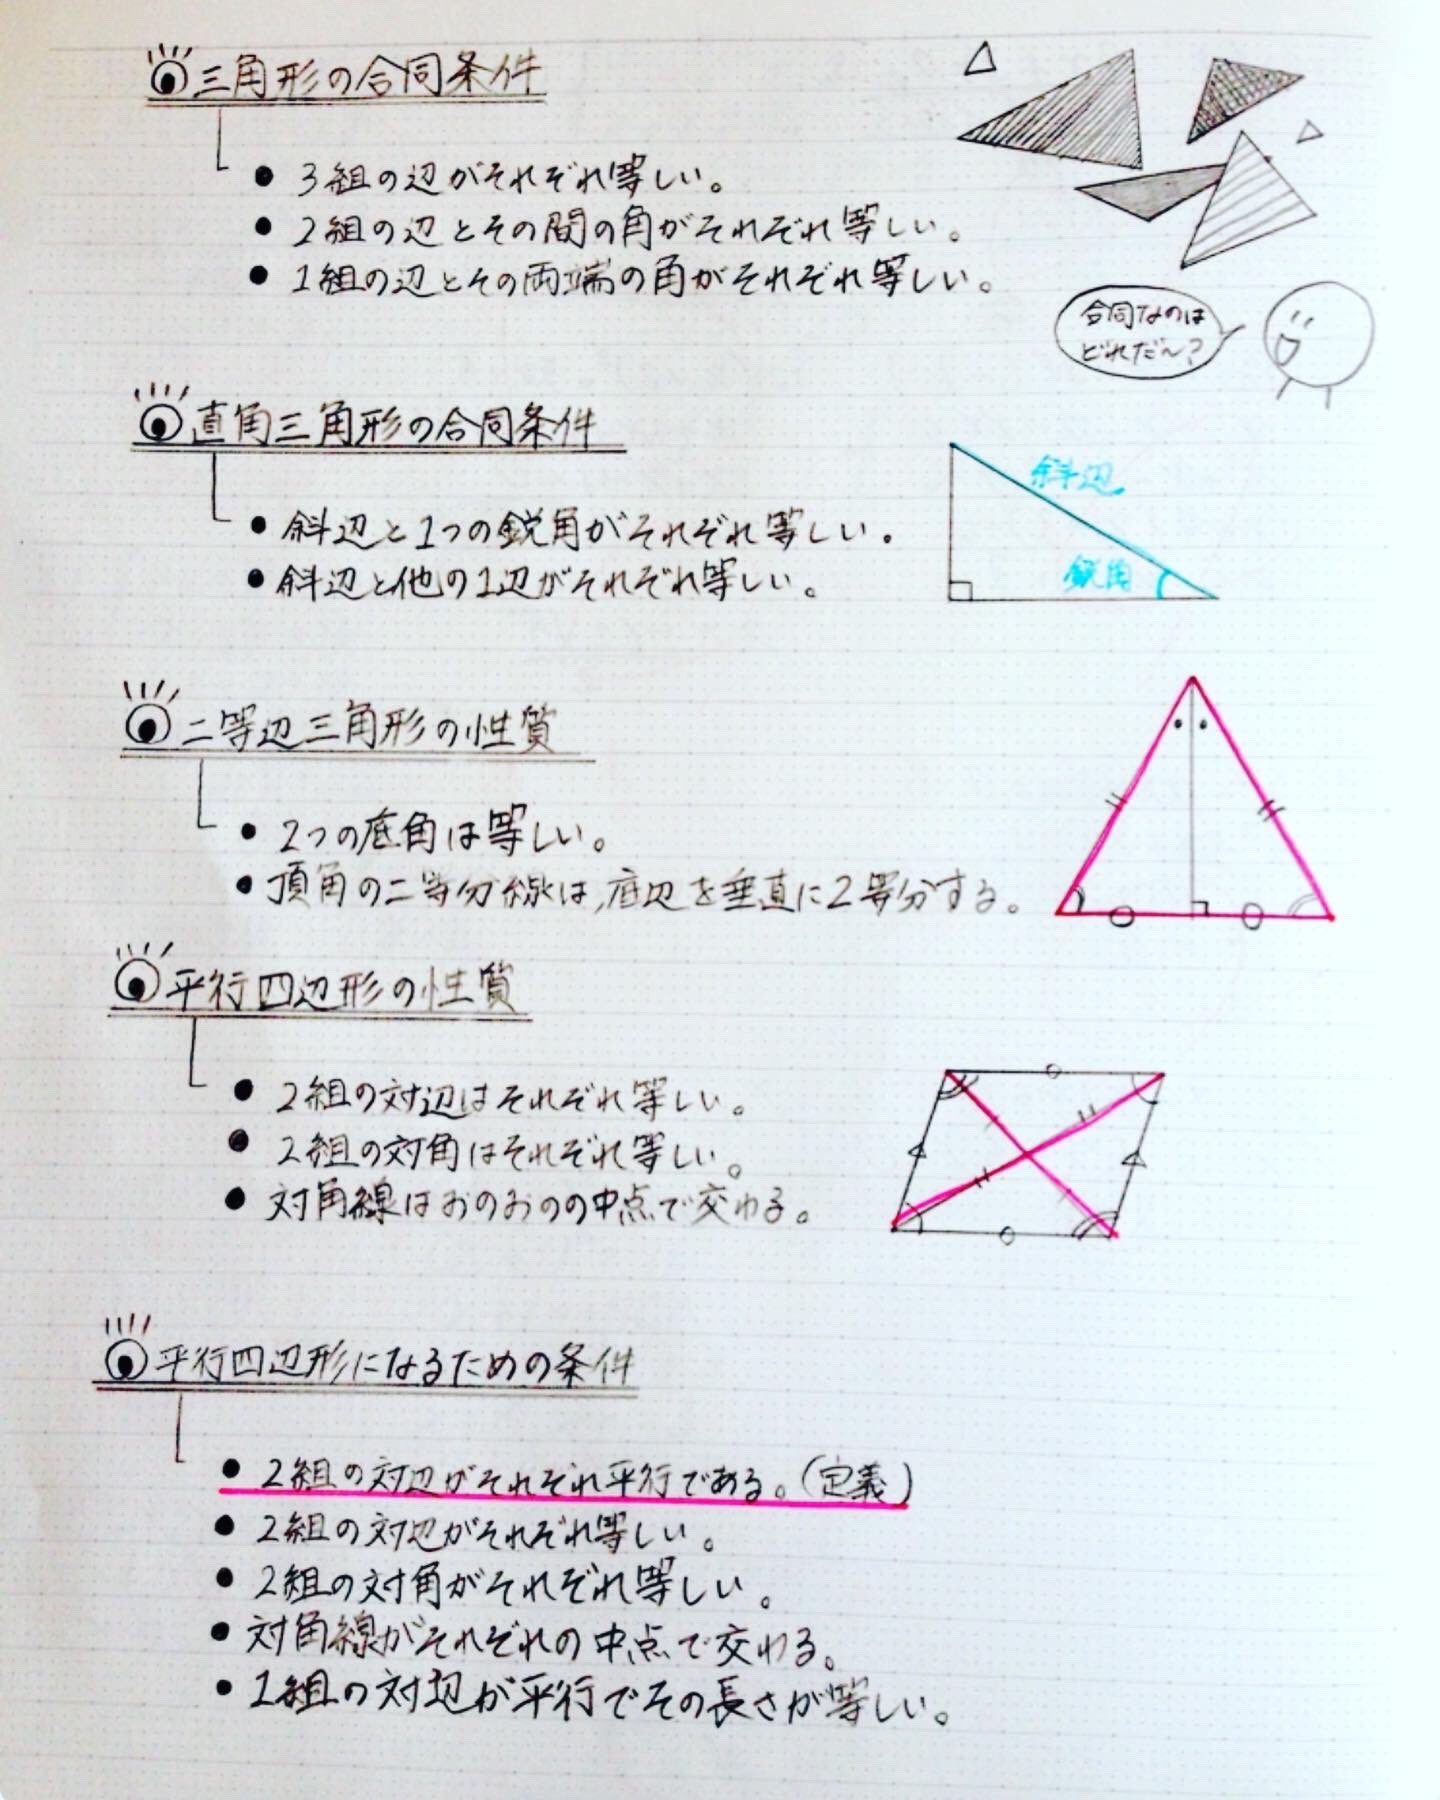 三角形の合同条件
● 3組の辺がそれぞれ等しい。
● 2組の辺とその間の角がそれぞれ等しい。
● 1組の辺とその両端の角がそれぞれ等しい。
合同なのは
どれだ〜?
直角三角形の合同条件
● 斜辺と1つの鋭角がそれぞれ等しい。
● 斜辺と他の1辺がそれぞれ等しい。
斜辺
鋭角
二等辺三角形の性質
● 2つの底角は等しい。
● 頂角の二等分線は、底辺を垂直に2等分する。
平行四辺形の性質
● 2組の対辺はそれぞれ等しい。
● 2組の対角はそれぞれ等しい。
● 対角線はおのおのの中点で交わる。
平行四辺形になるための条件
● 2組の対辺がそれぞれ平行である。(定義)
● 2組の対辺がそれぞれ等しい。
● 2組の対角がそれぞれ等しい。
● 対角線がそれぞれの中点で交わる。
● 1組の対辺が平行でその長さが等しい。